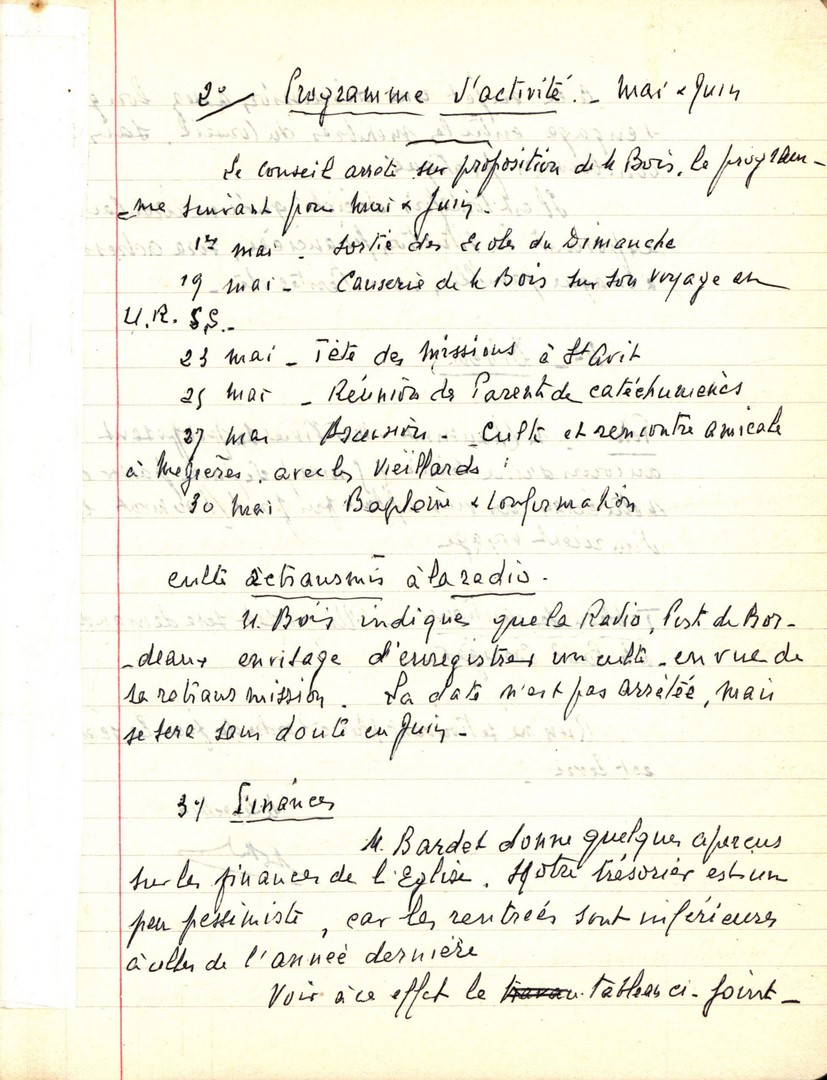 2°/ Programme d'activité. - Mai & Juin
Le conseil arrête sur proposition de M. Bois, le program-
-me suivant pour Mai & Juin.
17 mai - Sortie des Ecoles du Dimanche
19 mai - Causerie de M. Bois sur son voyage en
U.R.S.S. -
23 mai - Fête des Missions à St Avit
25 mai - Réunion de Parents de catéchumènes
27 mai Ascension - Culte et rencontre amicale
à Mézières, avec les Vieillards
30 mai Baptême & Confirmation
culte retransmis à la radio.
M. Bois indique que la Radio, Post de Bor-
-deaux envisage d'enregistrer un culte - en vue de
sa retransmission. La date n'est pas arrêtée, mais
se sera sans doute en Juin -
3°/ Finances
M. Bardet donne quelques aperçus
sur les finances de l'Eglise. Notre trésorier est un
peu pessimiste, car les rentrées sont inférieures
à celles de l'année dernière
Voir à ce effet le tableau ci-joint -